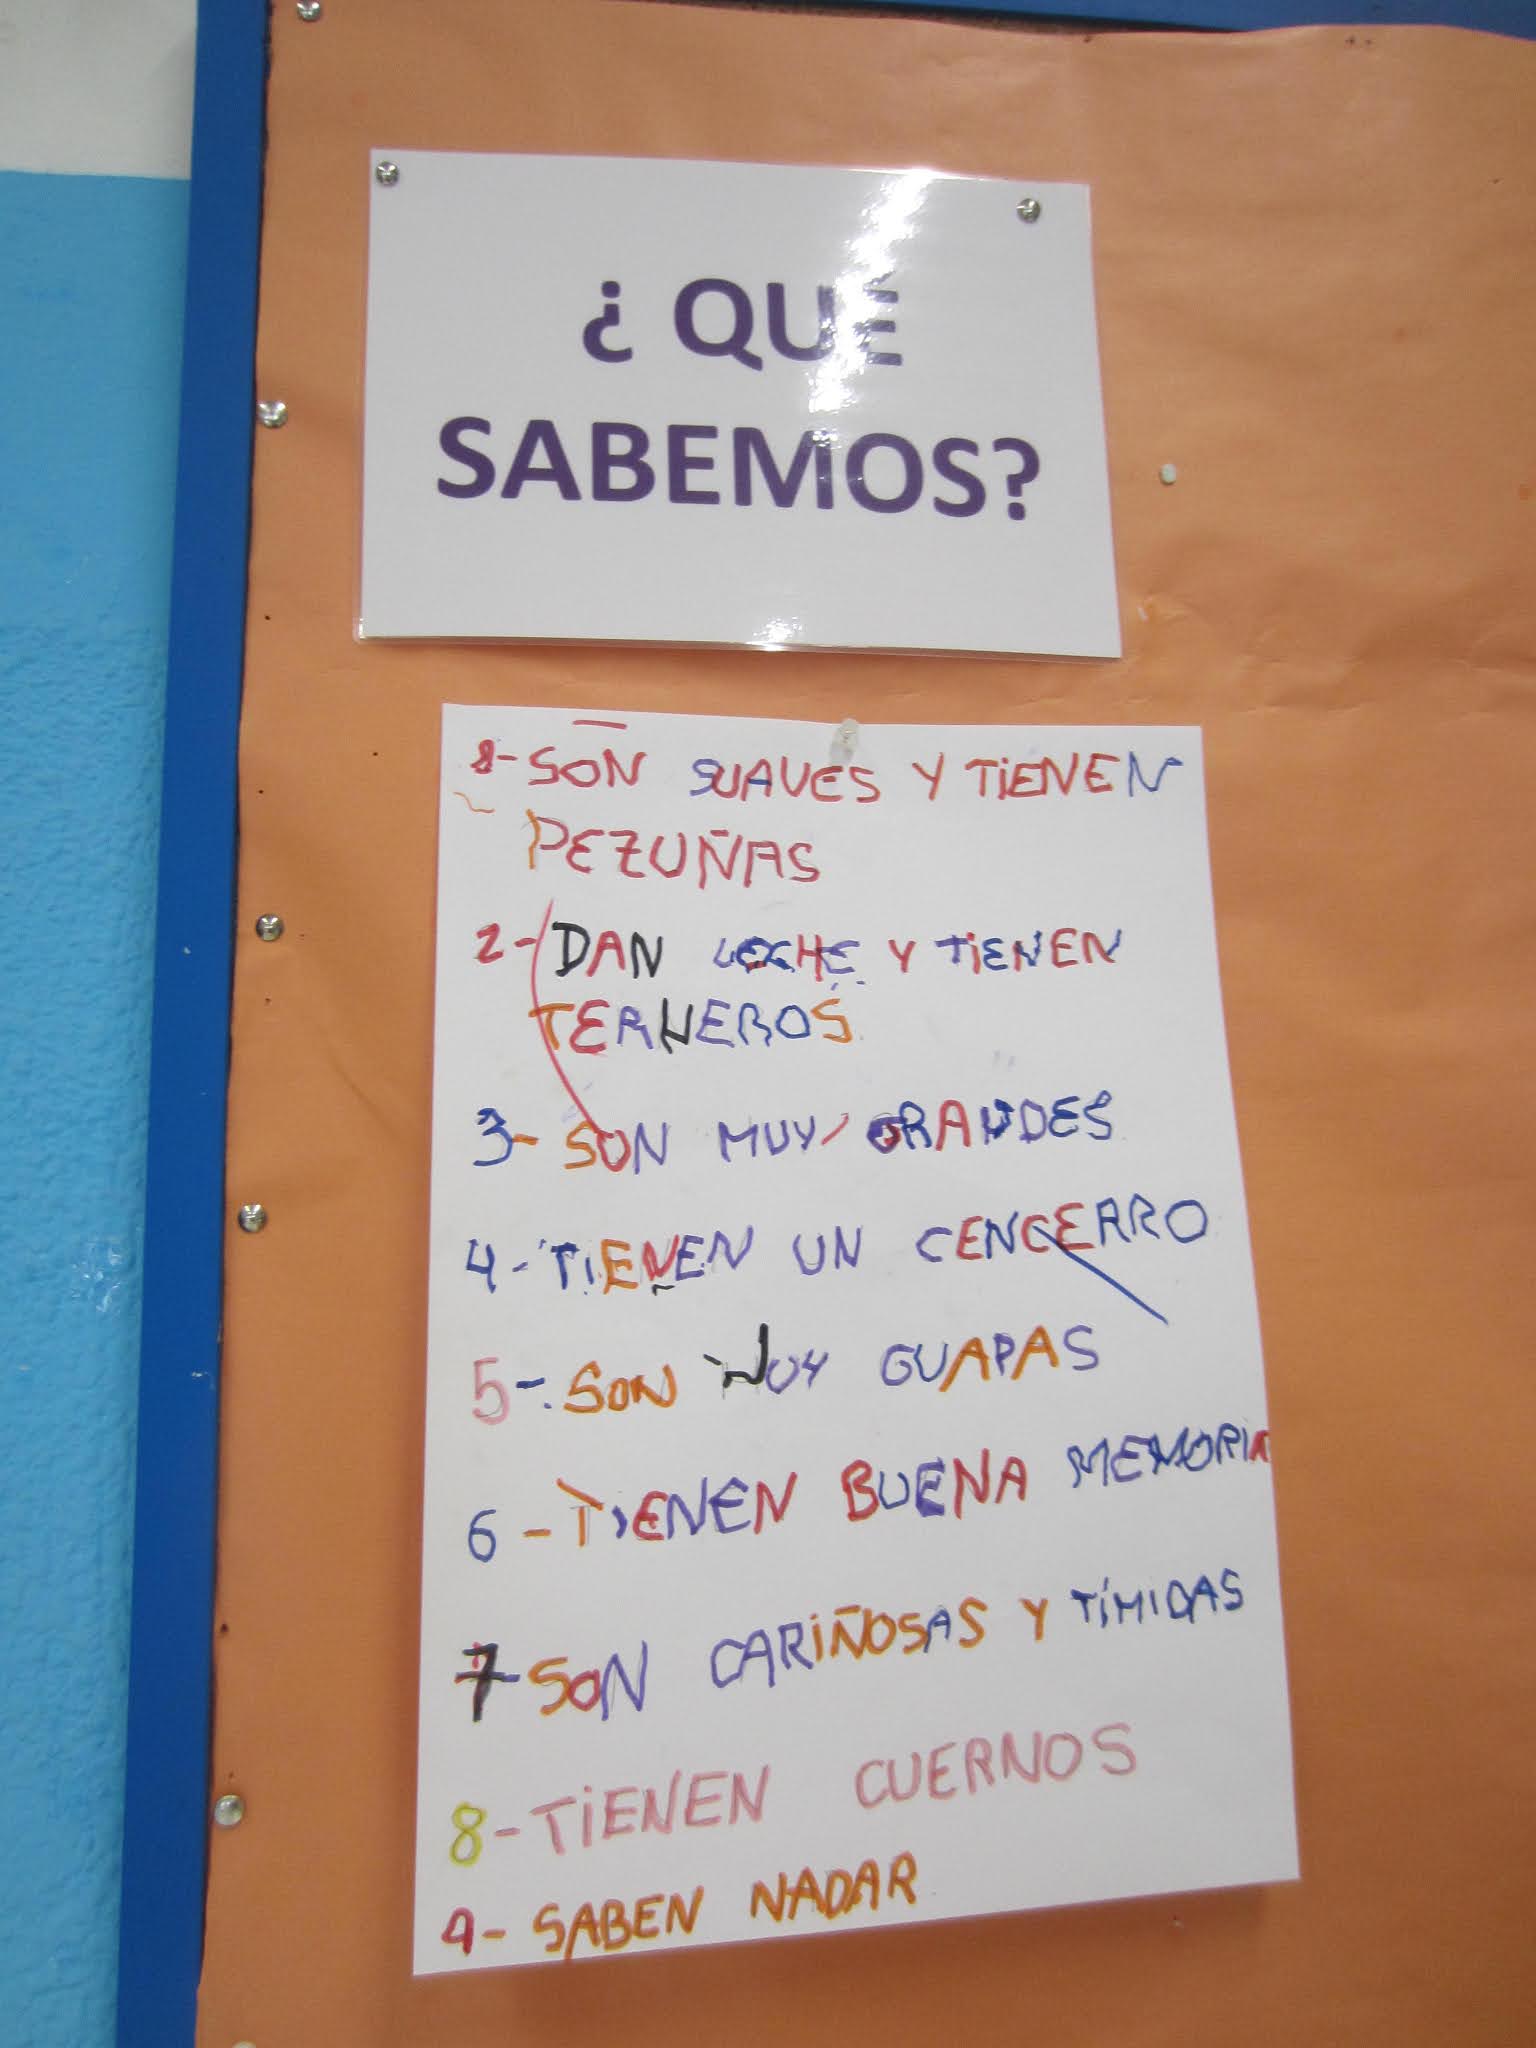 ¿ QUÉ
SABEMOS?
1- SON SUAVES Y TIENEN
PEZUÑAS
2- DAN LECHE Y TIENEN
TERNEROS
3- SON MUY GRANDES
4- TIENEN UN CENCERRO
5- SON MUY GUAPAS
6 - TIENEN BUENA MEMORIA
7- SON CARIÑOSAS Y TÍMIDAS
8- TIENEN CUERNOS
9- SABEN NADAR